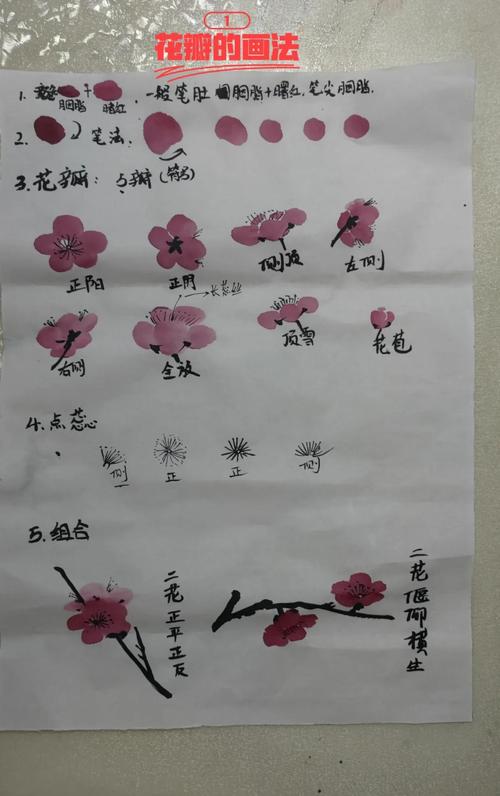 1
花瓣的画法
1. 胭脂 + 曙红, 一般笔肚胭脂+曙红, 笔尖胭脂.
2. 笔法:
3. 花瓣: 5瓣(符号)
正阳
正阴
侧顶
左侧
长花丝
右侧
全放
顶雪
花苞
4. 点蕊
侧
正
正
侧
5. 组合
二花正平正反
二花偃仰横生